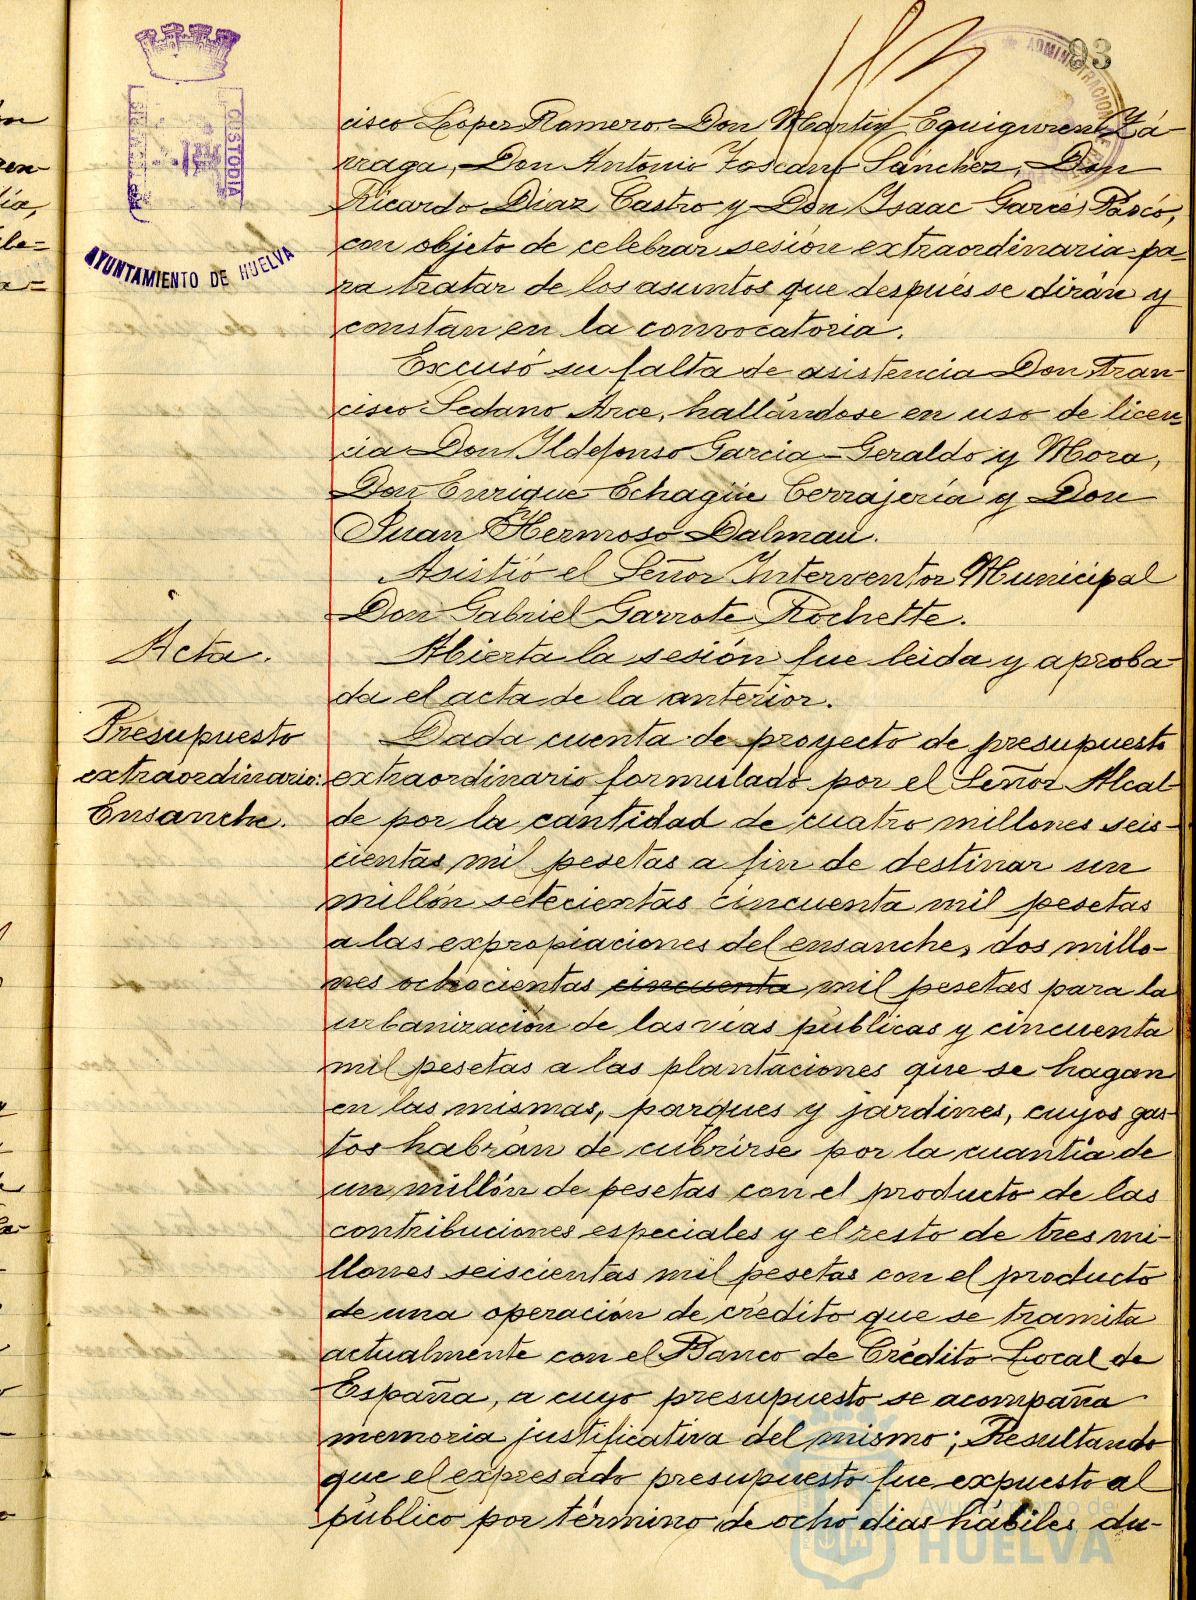 93
ADMINISTRACION DE
CUSTODIA
AYUNTAMIENTO DE HUELVA
cisco López Romero. Don Martin Eguiguren Lá-
rraga, Don Antonio Toscano Sánchez, Don
Ricardo Diaz Castro y Don Isaac Garcé Pascó,
con objeto de celebrar sesión extraordinaria pa-
ra tratar de los asuntos que después se dirán y
constan en la convocatoria.
Excusó su falta de asistencia Don Fran-
cisco Sedano Arce, hallándose en uso de licen-
cia Don Ildefonso Garcia-Geraldo y Mora,
Don Enrique Echagüe Cerrajería y Don
Juan Hermoso Dalmau.
Asistió el Señor Interventor Municipal
Don Gabriel Garrote Rochette.
Acta.
Abierta la sesión fue leida y aproba-
da el acta de la anterior.
Presupuesto
extraordinario:
Ensanche.
Dada cuenta de proyecto de presupuesto
extraordinario formulado por el Señor Alcal-
de por la cantidad de cuatro millones seis-
cientas mil pesetas a fin de destinar un
millón setecientas cincuenta mil pesetas
a las expropiaciones del ensanche, dos millo-
nes ochocientas cincuenta mil pesetas para la
urbanización de las vias públicas y cincuenta
mil pesetas a las plantaciones que se hagan
en las mismas, parques y jardines, cuyos gas-
tos habrán de cubrirse por la cuantía de
un millón de pesetas con el producto de las
contribuciones especiales y el resto de tres mi-
llones seiscientas mil pesetas con el producto
de una operación de crédito que se tramita
actualmente con el Banco de Crédito Local de
España, a cuyo presupuesto se acompaña
memoria justificativa del mismo; Resultando
que el expresado presupuesto fue expuesto al
público por término de ocho dias hábiles du-
Ayuntamiento de
HUELVA